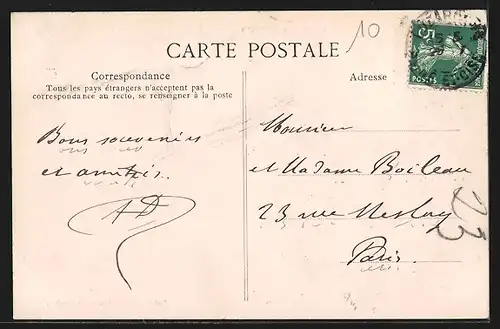 10
CARTE POSTALE
Correspondance
Tous les pays étrangers n'acceptent pas la
correspondance au recto, se renseigner à la poste
Bons souvenirs
et amitiés.
AD
Adresse
5
POSTES
Monsieur
et Madame Boileau
23 rue Meslay
Paris.
23